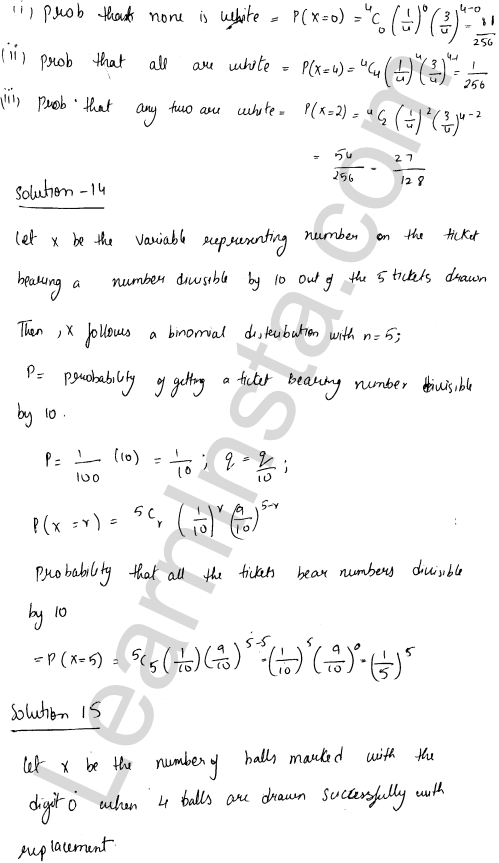 (i) prob that none is white = P(x=0) = ⁴C₀ (1/4)⁰ (3/4)⁴⁻⁰ = 81/256
(ii) prob that all are white = P(x=4) = ⁴C₄ (1/4)⁴ (3/4)⁴⁻⁴ = 1/256
(iii) Prob. that any two are white = P(x=2) = ⁴C₂ (1/4)² (3/4)⁴⁻²
= 54/256 = 27/128
Solution-14
Let x be the variable representing number on the ticket
bearing a number divisible by 10 out of the 5 tickets drawn
Then, x follows a binomial distribution with n=5;
P= probability of getting a ticket bearing number divisible
by 10.
P= 1/100 (10) = 1/10; q = 9/10;
P(x=r) = ⁵Cᵣ (1/10)ʳ (9/10)⁵⁻ʳ
Probability that all the tickets bear numbers divisible
by 10
= P(x=5) = ⁵C₅ (1/10) (9/10)⁵⁻⁵ = (1/10)⁵ (9/10)⁰ = (1/5)⁵
Solution 15
Let x be the number of balls marked with the
digit 0 when 4 balls are drawn successfully with
replacement.
LearnInsta.com